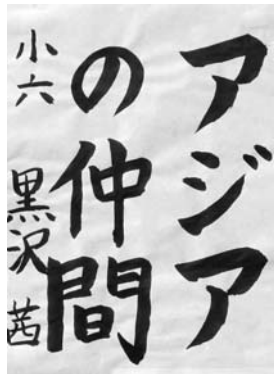 アジア
の仲間
小六 黒沢 茜